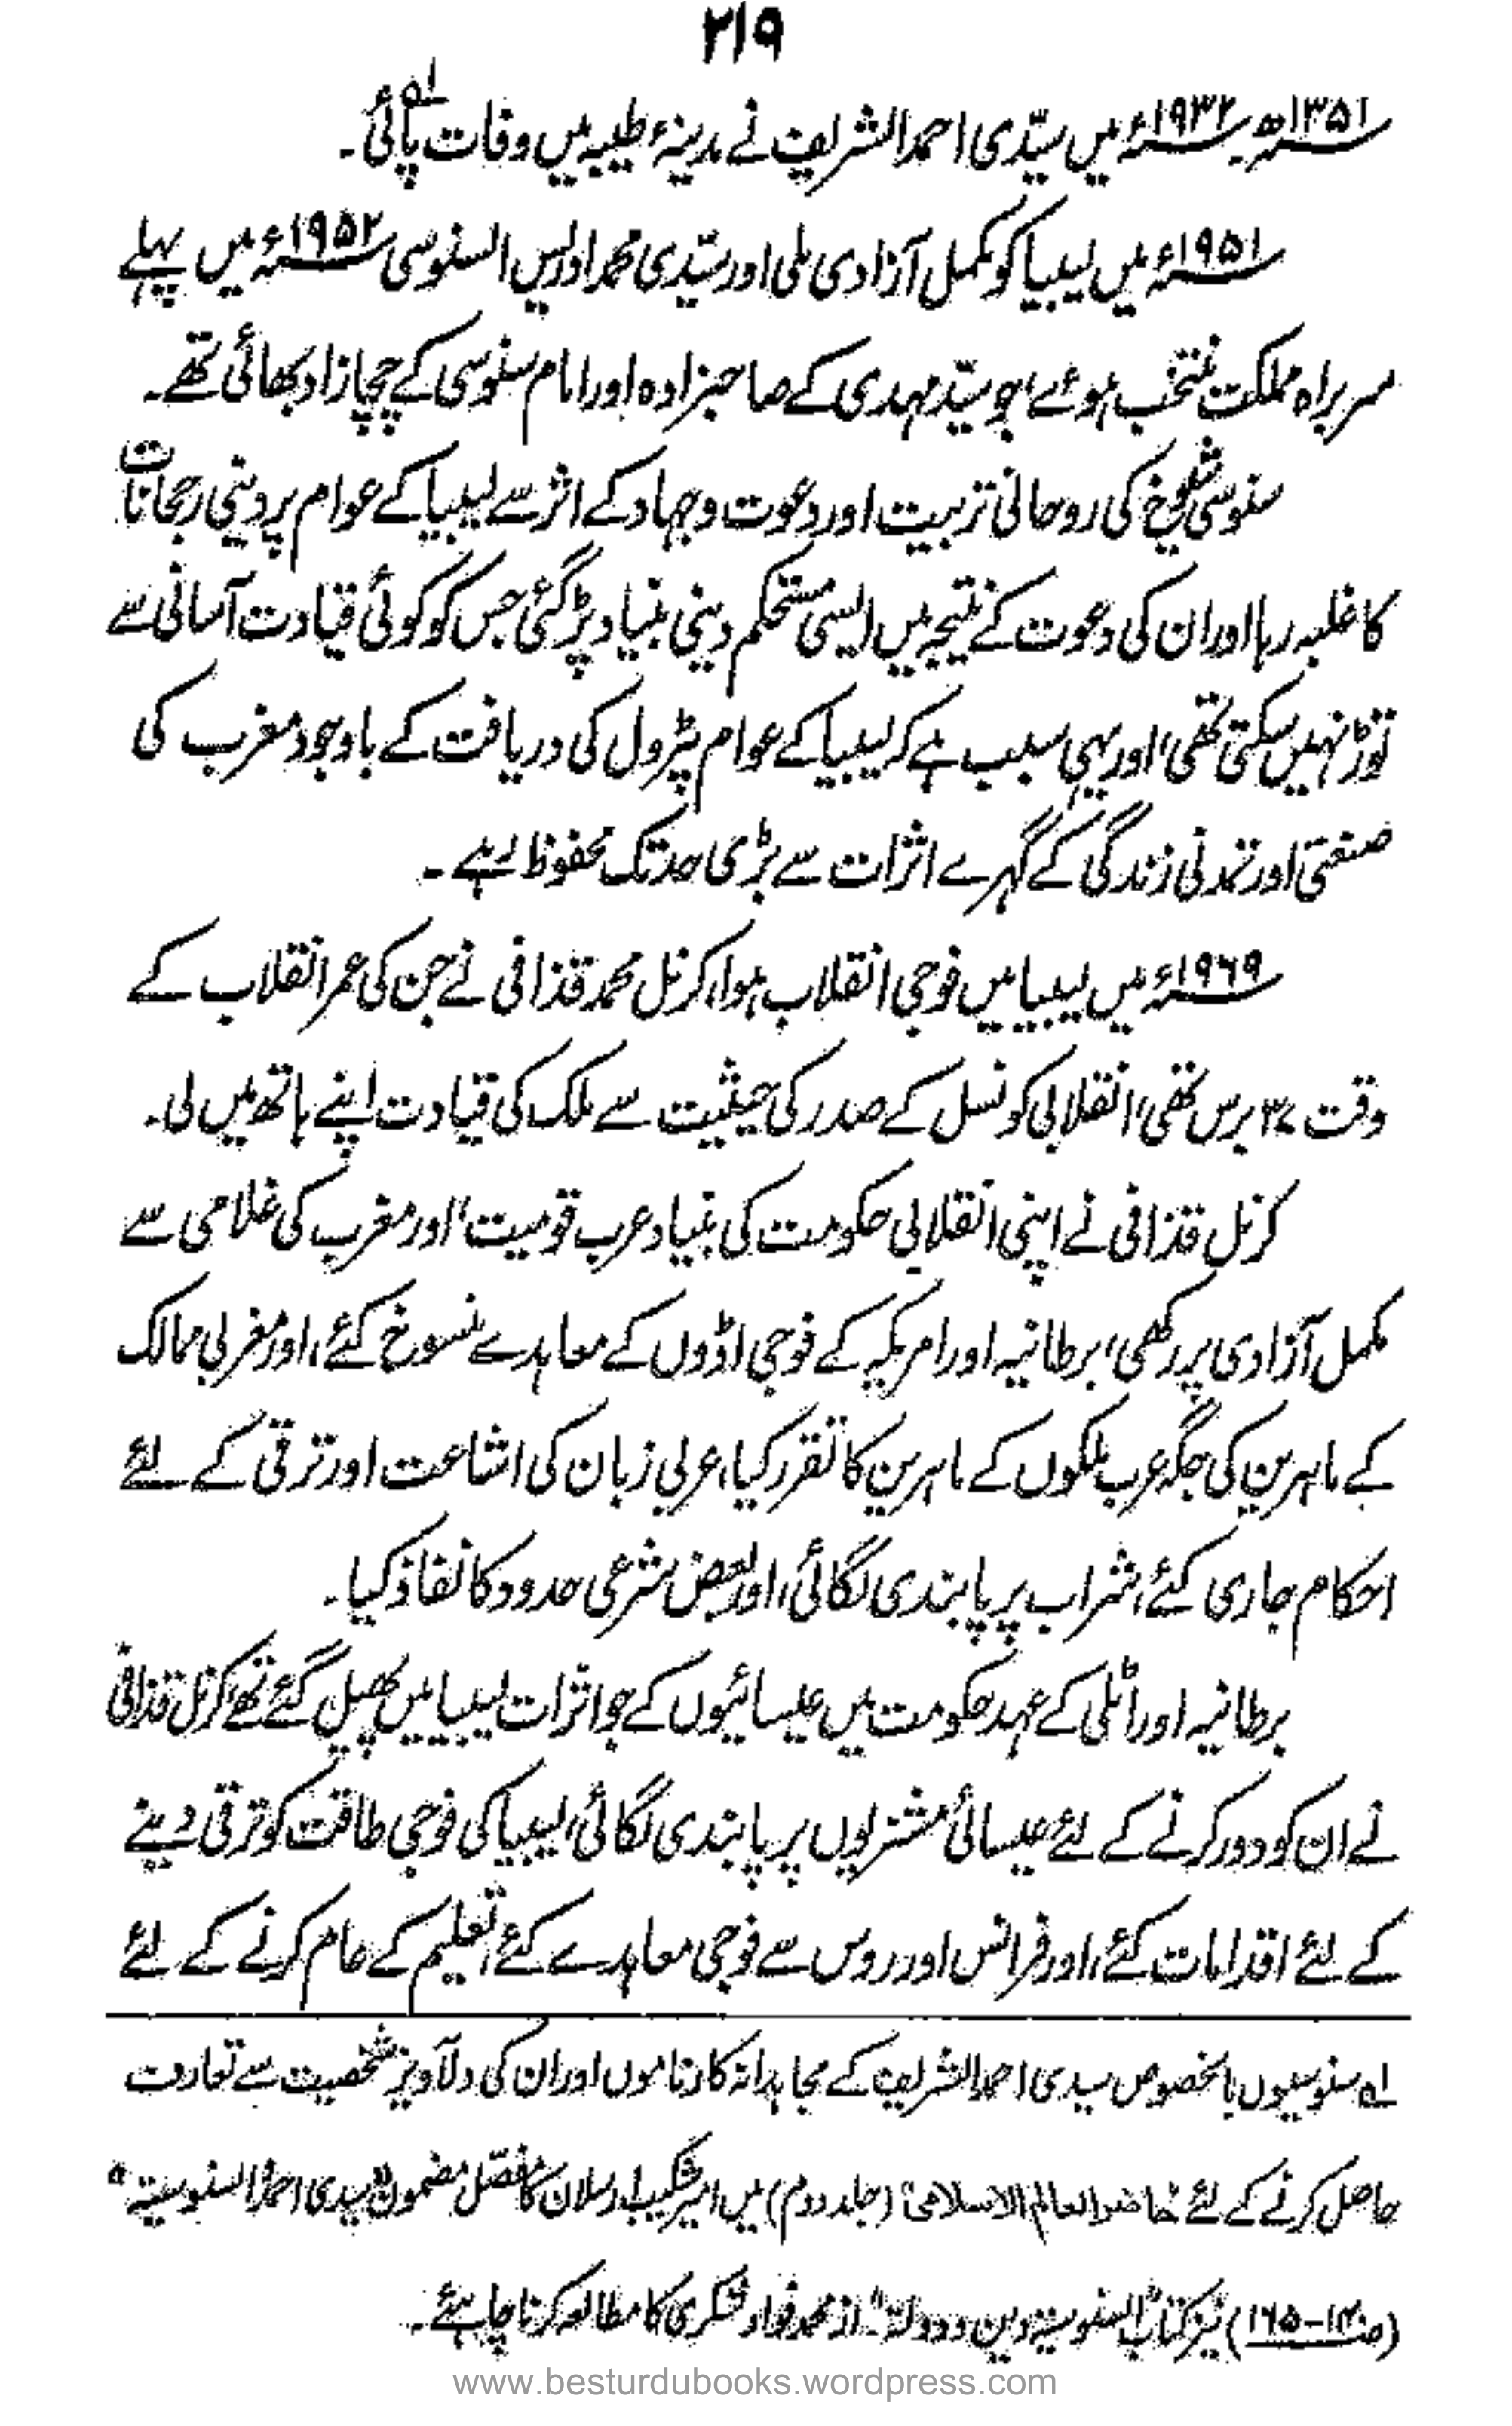 ۲۱۹
۱۳۵۱ھ ۱۹۳۲ء میں سیّدی احمد الشریف نے مدینۂ طیبہ میں وفات پائی۔ لہ
۱۹۵۱ء میں لیبیا کو مکمل آزادی ملی اور سیّدی محمد ادریس السنوسی ۱۹۵۲ء میں پہلے
سربراہ مملکت منتخب ہوئے، جو سیّد مہدی کے صاحبزادہ اور امام سنوسی کے چچازاد بھائی تھے۔
سنوسی شیوخ کی روحانی تربیت اور دعوت وجہاد کے اثر سے لیبیا کے عوام پر دینی رجحانات
کا غلبہ رہا اور ان کی دعوت کے نتیجہ میں ایسی مستحکم دینی بنیاد پڑ گئی جس کو کوئی قیادت آسانی سے
توڑ نہیں سکتی تھی، اور یہی سبب ہے کہ لیبیا کے عوام پٹرول کی دریافت کے باوجود مغرب کی
صنعتی اور تمدنی زندگی کے گہرے اثرات سے بڑی حد تک محفوظ رہے۔
۱۹۶۹ء میں لیبیا میں فوجی انقلاب ہوا، کرنل محمد قذافی نے جن کی عمر انقلاب کے
وقت ۳۷ برس تھی، انقلابی کونسل کے صدر کی حیثیت سے ملک کی قیادت اپنے ہاتھ میں لی۔
کرنل قذافی نے اپنی انقلابی حکومت کی بنیاد عرب قومیت، اور مغرب کی غلامی سے
مکمل آزادی پر رکھی، برطانیہ اور امریکہ کے فوجی اڈوں کے معاہدے منسوخ کئے، اور مغربی ممالک
کے ماہرین کی جگہ عرب ملکوں کے ماہرین کا تقرر کیا، عربی زبان کی اشاعت اور ترقی کے لئے
احکام جاری کئے، شراب پر پابندی لگائی، اور بعض شرعی حدود کا نفاذ کیا۔
برطانیہ اور اٹلی کے عہد حکومت میں عیسائیوں کے جو اثرات لیبیا میں پھیل گئے تھے کرنل قذافی
نے ان کو دور کرنے کے لئے عیسائی مشنریوں پر پابندی لگائی، لیبیا کی فوجی طاقت کو ترقی دینے
کے لئے اقدامات کئے، اور فرانس اور روس سے فوجی معاہدے کئے، تعلیم کے عام کرنے کے لئے
لہ سنوسیوں بالخصوص سیدی احمد الشریف کے مجاہدانہ کارناموں اور ان کی دلآویز شخصیت سے تعارف
حاصل کرنے کے لئے حاضر العالم الاسلامی (جلد دوم) میں امیر شکیب ارسلان کا مفصّل مضمون "سیدی احمد السنوسیہ"
(ص ۱۴۰-۱۶۵) نیز کتاب "السنوسیۃ دین ودولۃ" از محمد فواد شکری کا مطالعہ کرنا چاہئے۔
www.besturdubooks.wordpress.com